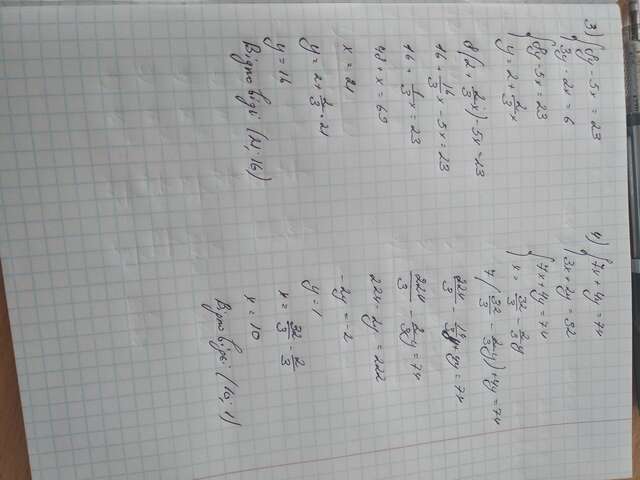 3) { 8y - 5x = 23
3y - 2x = 6
{ 8y - 5x = 23
y = 2 + 2/3 x
8(2 + 2/3 x) - 5x = 23
16 + 16/3 x - 5x = 23
16 + 1/3 x = 23
48 + x = 69
x = 21
y = 2 + 2/3 · 21
y = 16
(21; 16)
4) { 7x + 4y = 74
3x + 2y = 32
{ 7x + 4y = 74
x = 32/3 - 2/3 y
7(32/3 - 2/3 y) + 4y = 74
224/3 - 14/3 y + 4y = 74
224/3 - 2/3 y = 74
224 - 2y = 222
-2y = -2
y = 1
x = 32/3 - 2/3
x = 10
(10; 1)